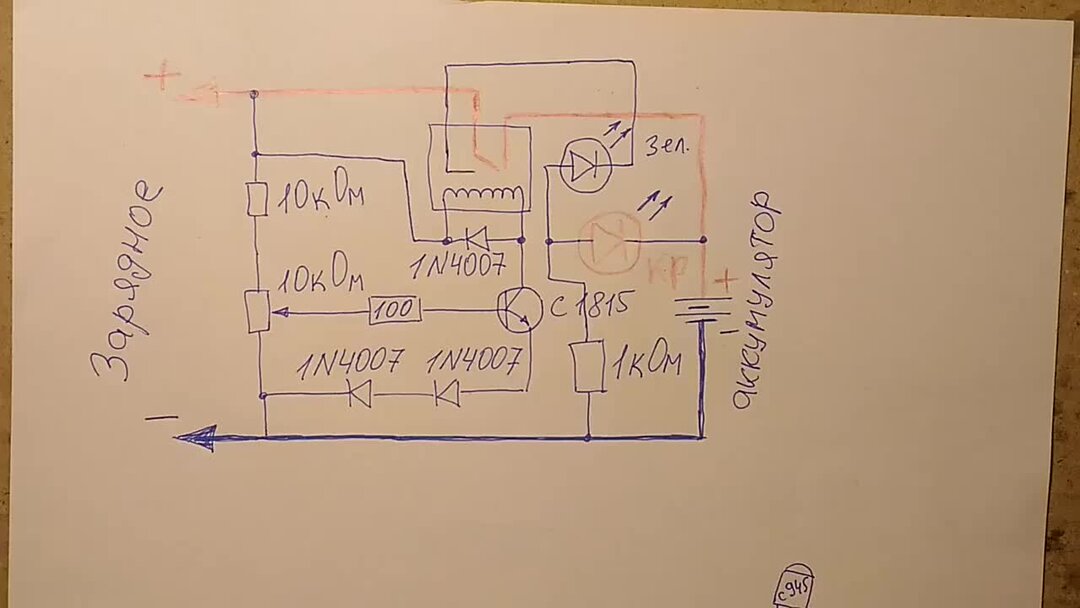 +
Зарядное
−
10кОм
10кОм
100
1N4007
С1815
1N4007
1N4007
Зел.
кр
1кОм
+
−
аккумулятор
с945